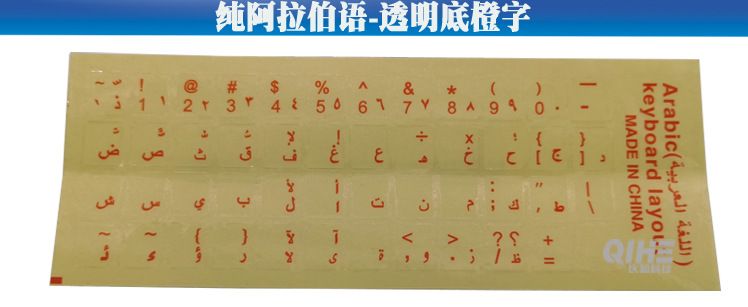 纯阿拉伯语-透明底橙字
! @ # $ % ^ & * ( )
1 ١ 2 ٢ 3 ٣ 4 ٤ 5 ٥ 6 ٦ 7 ٧ 8 ٨ 9 ٩ 0 ٠ -
ض ص ث ق ف لإ غ إ ع ه ÷ خ x ح ج د
ش س ي ب ل لأ ا أ ت ن م ك ط
ئ ء ؤ { ر } لا لآ ى آ ة و < ز > ظ = +
Arabic(اللغة العربية)
keyboard layout
MADE IN CHINA
QIHE